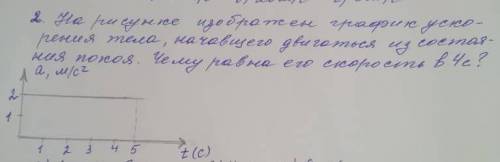 2. На рисунке изображен график уско-
рения тела, начавшего двигаться из состоя-
ния покоя. Чему равна его скорость в 4с?
a, м/с²
2
1
1 2 3 4 5 t(c)